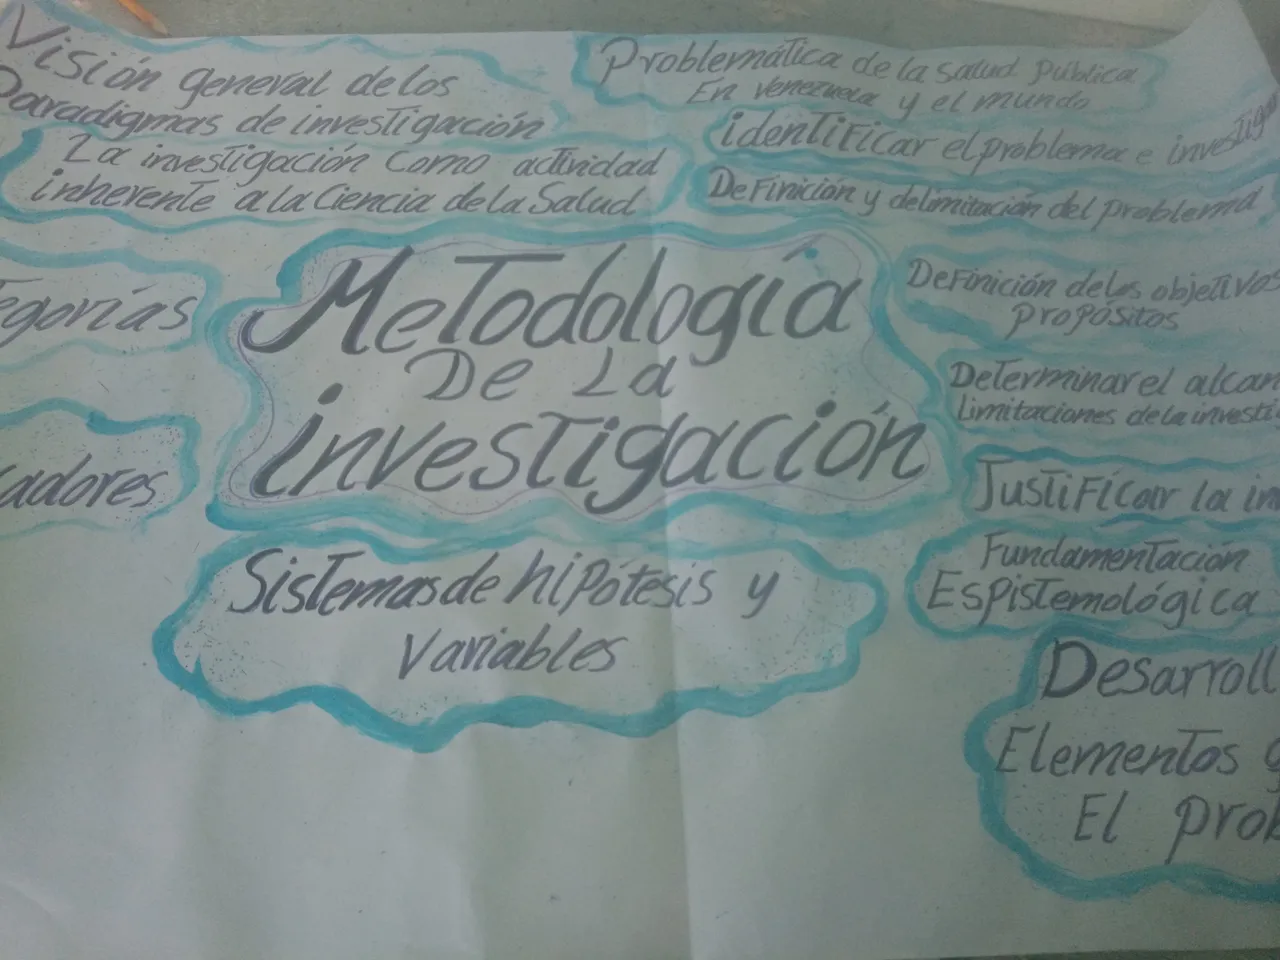 Visión general de los
Paradigmas de investigación
La investigación como actividad
inherente a la Ciencia de la Salud
Problemática de la salud pública
En Venezuela y el mundo
identificar el problema e investigar
Definición y delimitación del problema
egorías
Metodología
De La
investigación
Definición de los objetivos
Propósitos
Determinar el alcan
Limitaciones de la investi
adores
Justificar la in
Fundamentación
Espistemológica
Sistemas de hipótesis y
Variables
Desarroll
Elementos
El prob